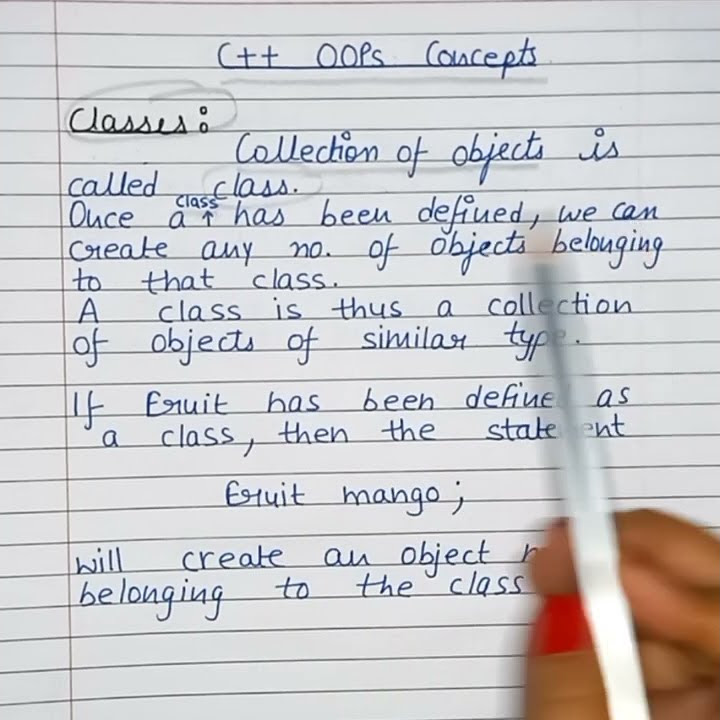 C++ OOPs Concepts
Classes:
Collection of objects is
called class.
Once a class has been defined, we can
create any no. of objects belonging
to that class.
A class is thus a collection
of objects of similar type.
If Fruit has been define as
a class, then the statement
Fruit mango;
will create an object
belonging to the class